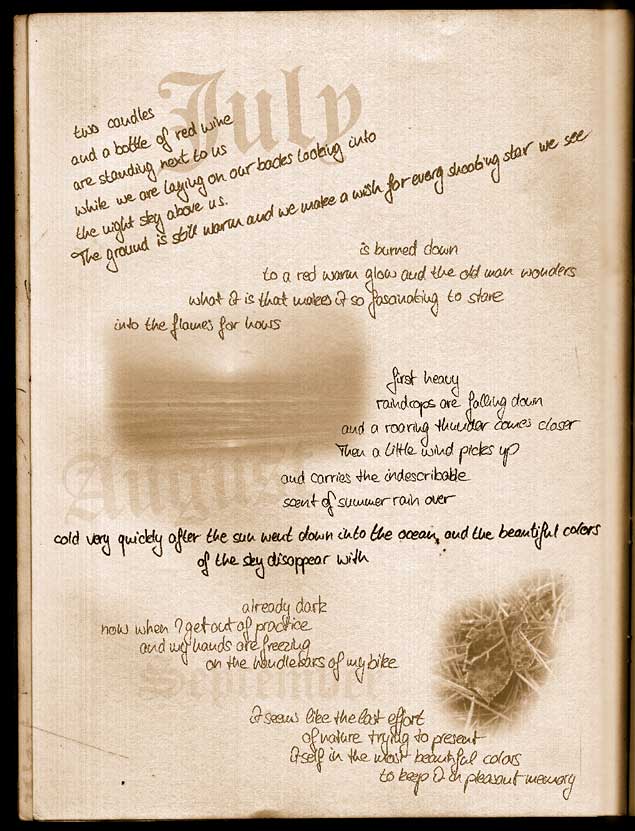 July
two candles
and a bottle of red wine
are standing next to us
while we are laying on our backs looking into
the night sky above us.
The ground is still warm and we make a wish for every shooting star we see
is burned down
to a red warm glow and the old man wonders
what it is that makes it so fascinating to stare
into the flames for hours
first heavy
raindrops are falling down
and a roaring thunder comes closer
Then a little wind picks up
and carries the indescribable
scent of summer rain over
August
cold very quickly after the sun went down into the ocean, and the beautiful colors
of the sky disappear with
already dark
now when I get out of practice
and my hands are freezing
on the handlebars of my bike
September
it seems like the last effort
of nature trying to present
itself in the most beautiful colors
to keep it in pleasant memory